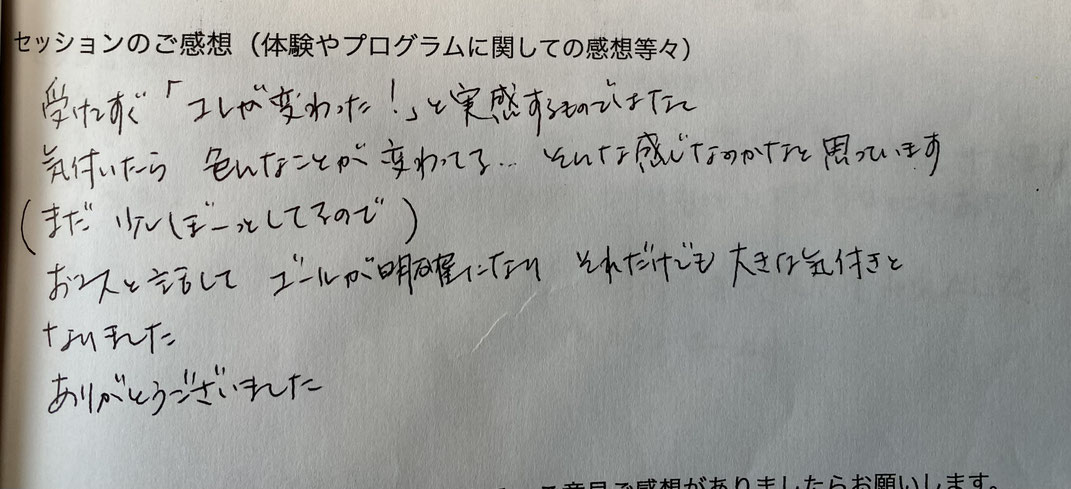 セッションのご感想（体験やプログラムに関しての感想等々）
受けてすぐ「コレが変わった！」と実感するものではなくて
気付いたら 色んなことが 変わってる… そんな感じなのかなと思っています
(まだ 少しぼーっとしてるので)
と話して ゴールが明確になり それだけでも 大きな気付きと
なりました
ありがとうございました
ご意見ご感想がありましたらお願いします。